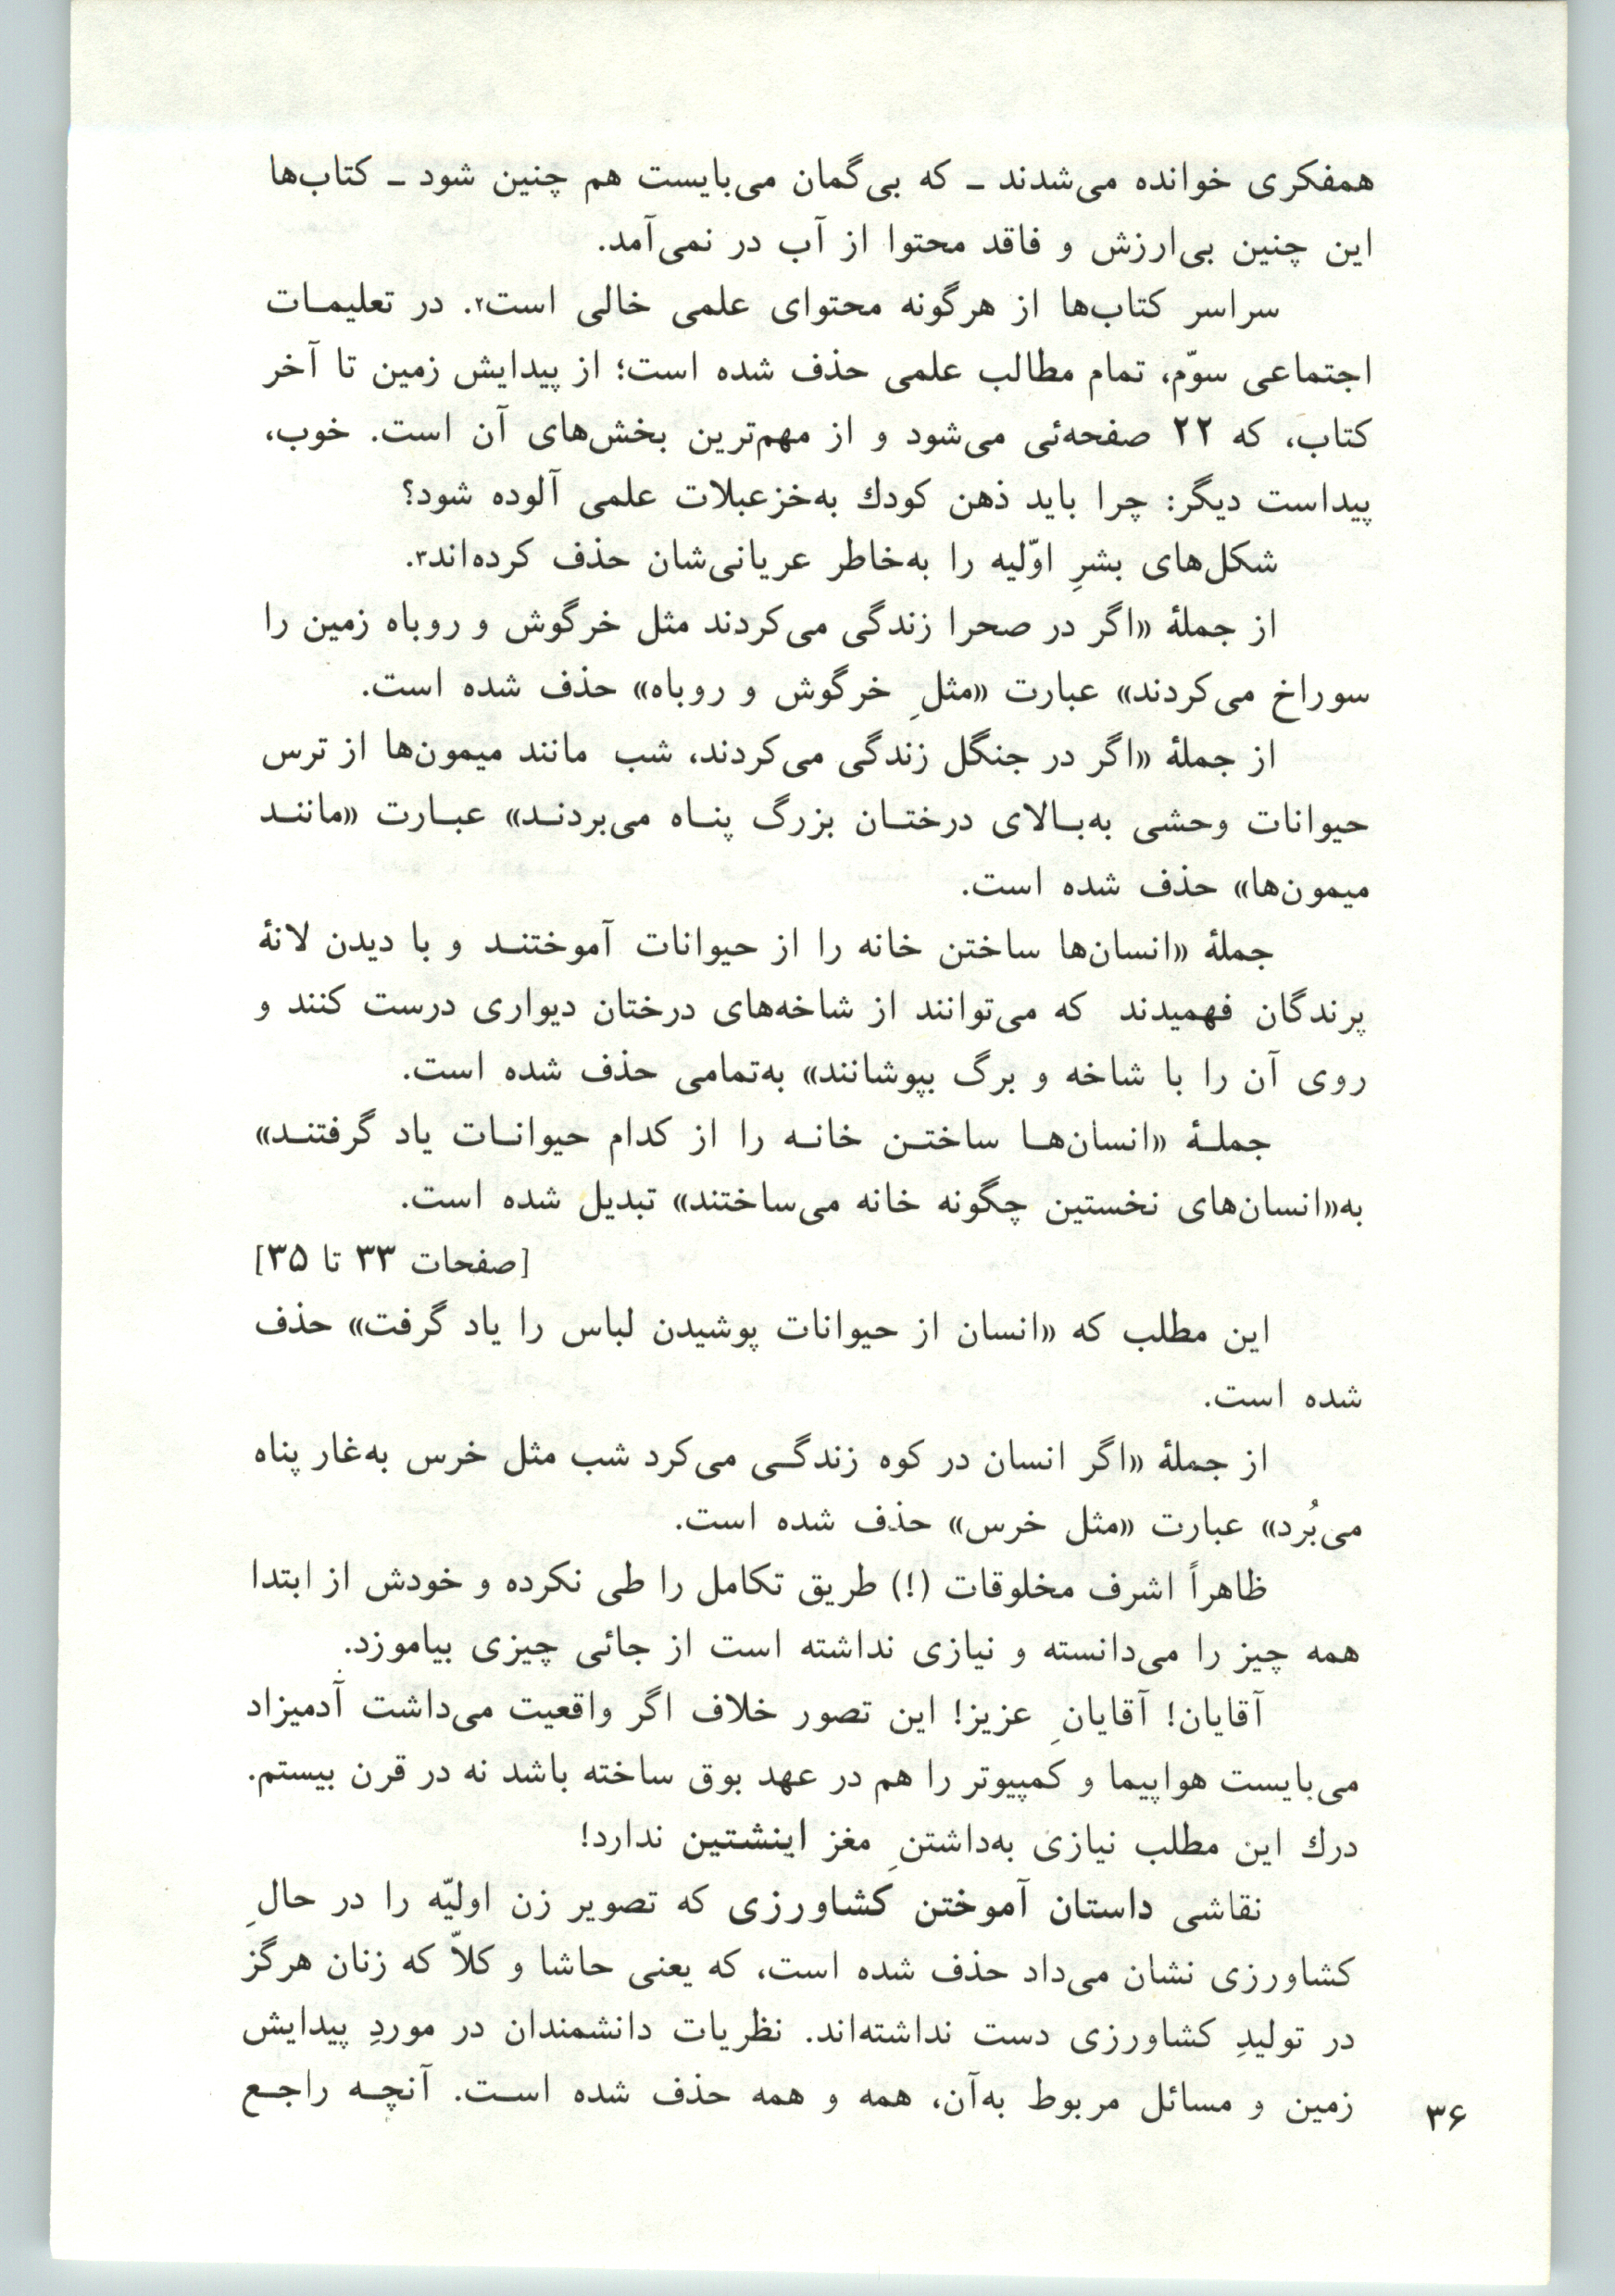 همفکری خوانده می‌شدند ـ که بی‌گمان می‌بایست هم چنین شود ـ کتاب‌ها
این چنین بی‌ارزش و فاقد محتوا از آب در نمی‌آمد.
سراسر کتاب‌ها از هرگونه محتوای علمی خالی است۲. در تعلیمـات
اجتماعی سوّم، تمام مطالب علمی حذف شده است؛ از پیدایش زمین تا آخر
کتاب، که ۲۲ صفحه‌ئی می‌شود و از مهم‌ترین بخش‌های آن است. خوب،
پیداست دیگر: چرا باید ذهن کودك به‌خزعبلات علمی آلوده شود؟
شکل‌های بشرِ اوّلیه را به‌خاطر عریانی‌شان حذف کرده‌اند۳.
از جملۀ «اگر در صحرا زندگی می‌کردند مثل خرگوش و روباه زمین را
سوراخ می‌کردند» عبارت «مثلِ خرگوش و روباه» حذف شده است.
از جملۀ «اگر در جنگل زندگی می‌کردند، شب مانند میمون‌ها از ترس
حیوانات وحشی به‌بـالای درختـان بزرگ پنـاه می‌بردنـد» عبـارت «ماننـد
میمون‌ها» حذف شده است.
جملۀ «انسان‌ها ساختن خانه را از حیوانات آموختنـد و با دیدن لانۀ
پرندگان فهمیدند که می‌توانند از شاخه‌های درختان دیواری درست کنند و
روی آن را با شاخه و برگ بپوشانند» به‌تمامی حذف شده است.
جملـۀ «انسان‌هـا ساختـن خانـه را از کدام حیوانـات یاد گرفتنـد»
به«انسان‌های نخستین چگونه خانه می‌ساختند» تبدیل شده است.
[صفحات ۳۳ تا ۳۵]
این مطلب که «انسان از حیوانات پوشیدن لباس را یاد گرفت» حذف
شده است.
از جملۀ «اگر انسان در کوه زندگـی می‌کرد شب مثل خرس به‌غار پناه
می‌بُرد» عبارت «مثل خرس» حذف شده است.
ظاهراً اشرف مخلوقات (!) طریق تکامل را طی نکرده و خودش از ابتدا
همه چیز را می‌دانسته و نیازی نداشته است از جائی چیزی بیاموزد.
آقایان! آقایانِ عزیز! این تصور خلاف اگر واقعیت می‌داشت آدمیزاد
می‌بایست هواپیما و کمپیوتر را هم در عهد بوق ساخته باشد نه در قرن بیستم.
درك این مطلب نیازی به‌داشتنِ مغز اینشتین ندارد!
نقاشی داستان آموختن کشاورزی که تصویر زن اولیّه را در حالِ
کشاورزی نشان می‌داد حذف شده است، که یعنی حاشا و کلاّ که زنان هرگز
در تولیدِ کشاورزی دست نداشته‌اند. نظریات دانشمندان در موردِ پیدایش
زمین و مسائل مربوط به‌آن، همه و همه حذف شده اسـت. آنچـه راجـع
۳۶